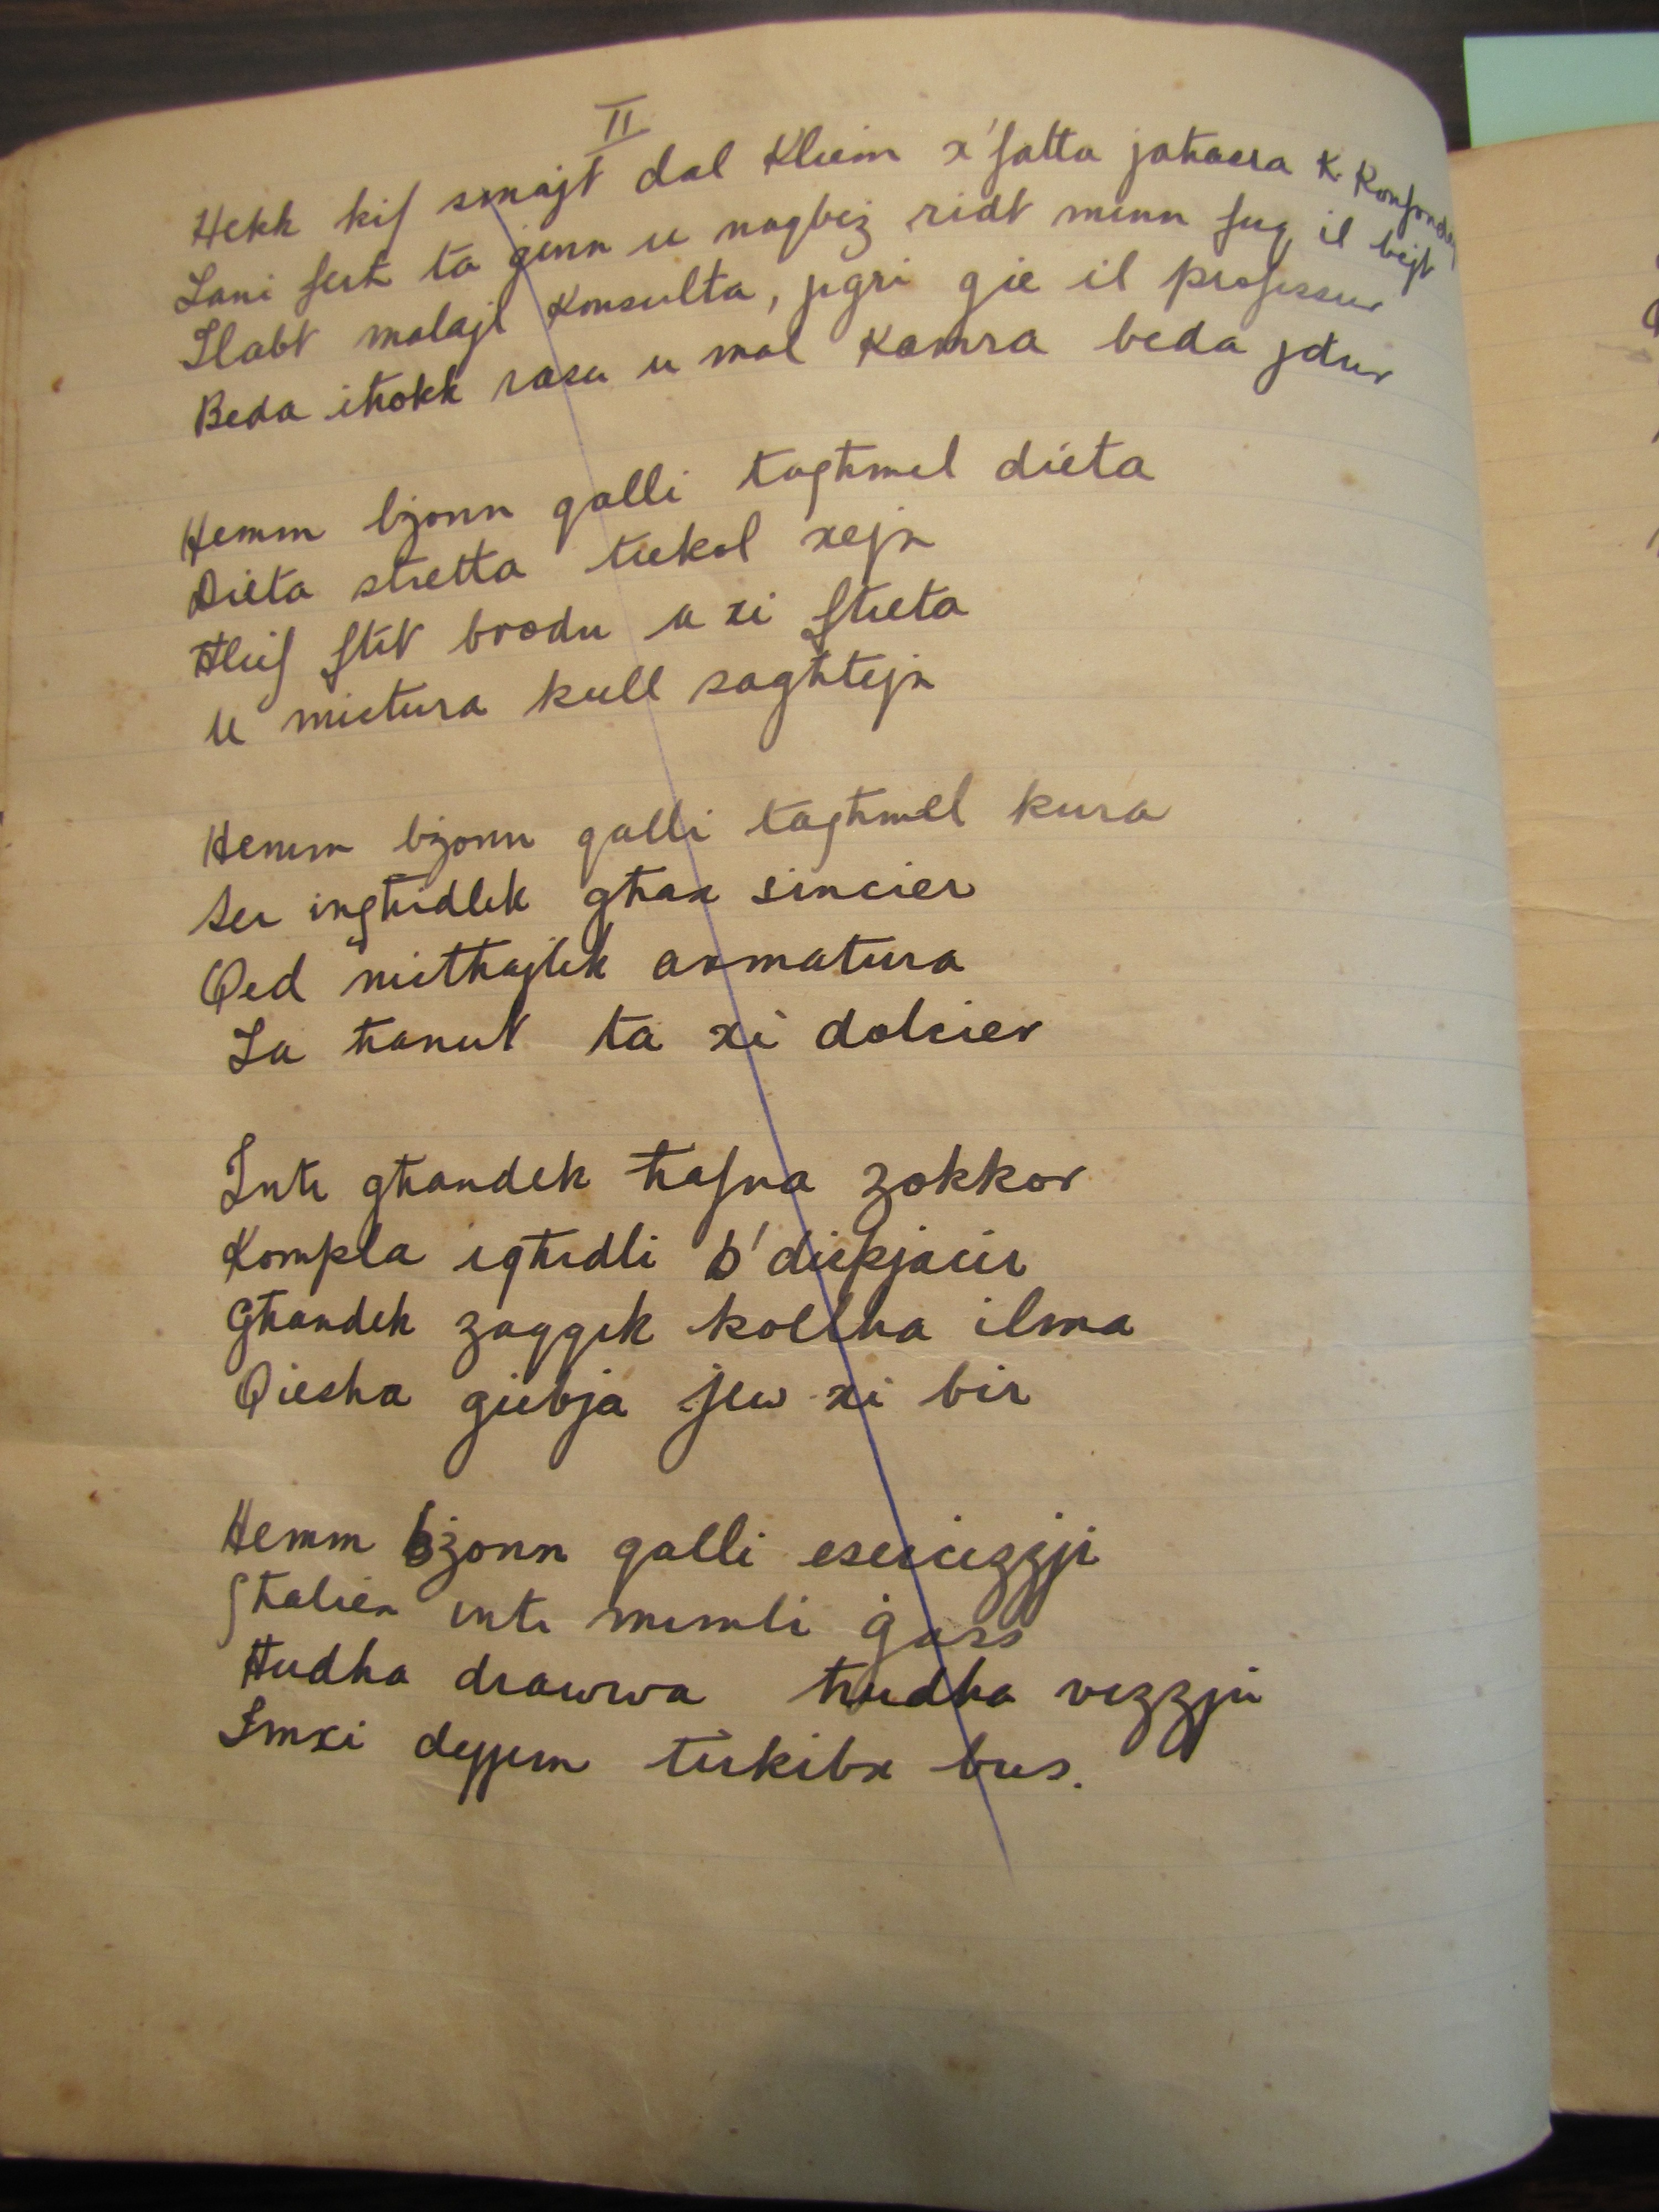 II
Hekk kif smajt dal Kliem x'fatta jaħasra K. Konfondejt
Lani fert ta ġenn u naqbeż ridt minn fuq il bejt
Tlabt malajl Konsulta, jiġri ġie il professur
Beda iħokk rasu u mal Kamra beda jdur
Hemm bżonn qalli tagħmel dieta
Dieta stretta tiekol xejn
Ħlief ftit brodu u xi ftieta
u mictura kull sagħtejn
Hemm bżonn qalli tagħmel kura
Ser ingħidlek għax sincier
Qed niethajlek armatura
Ta ħanut ta xi dolcier
Inti għandek ħafna zokkor
Kompla igħidli b'diспjacir
Għandek żaqqek kollha ilma
Qiesha ġiebja jew xi bir
Hemm bżonn qalli esercizzji
Għaliex inti mimli gass
Ħudha drawwa ħudha vizzju
Imxi dejjem tirkibx bus.